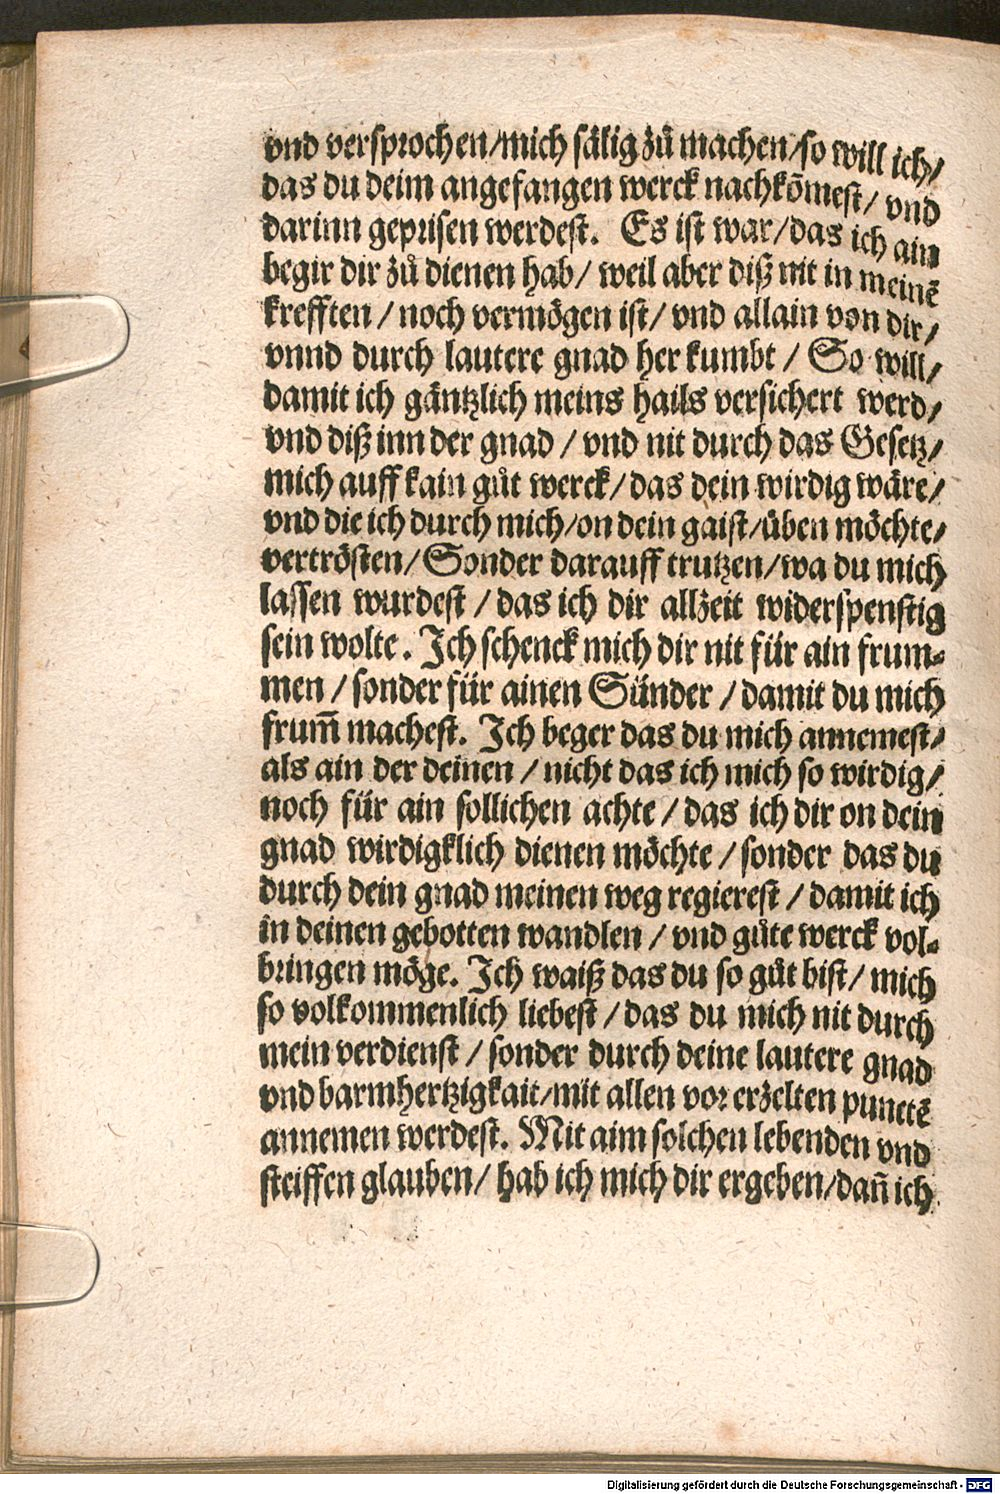 vnd versprochen/mich sälig zů machen/so will ich/
das du deim angefangen werck nachkõmest/ vnd
darinn geprisen werdest. Es ist war/das ich ain
begir dir zů dienen hab/ weil aber diß nit in meinẽ
krefften / noch vermögen ist/ vnd allain von dir/
vnnd durch lautere gnad her kumbt / So will/
damit ich gäntzlich meins hails versichert werd/
vnd diß inn der gnad / vnd nit durch das Gesetz/
mich auff kain gůt werck/ das dein wirdig wäre/
vnd die ich durch mich/on dein gaist/üben möchte/
vertrösten/ Sonder darauff trutzen/wa du mich
lassen wurdest / das ich dir allzeit widerspenstig
sein wolte. Ich schenck mich dir nit für ain frum-
men / sonder für ainen Sünder / damit du mich
frum̃ machest. Ich beger das du mich annemest/
als ain der deinen / nicht das ich mich so wirdig/
noch für ain sollichen achte / das ich dir on dein
gnad wirdigklich dienen möchte / sonder das du
durch dein gnad meinen weg regierest / damit ich
in deinen gebotten wandlen / vnd gůte werck vol-
bringen möge. Ich waiß das du so gůt bist/ mich
so volkommenlich liebest / das du mich nit durch
mein verdienst / sonder durch deine lautere gnad
vnd barmhertzigkait/mit allen vor erzelten punctẽ
annemen werdest. Mit aim solchen lebenden vnd
steiffen glauben/ hab ich mich dir ergeben/dañ ich
Digitalisierung gefördert durch die Deutsche Forschungsgemeinschaft - DFG